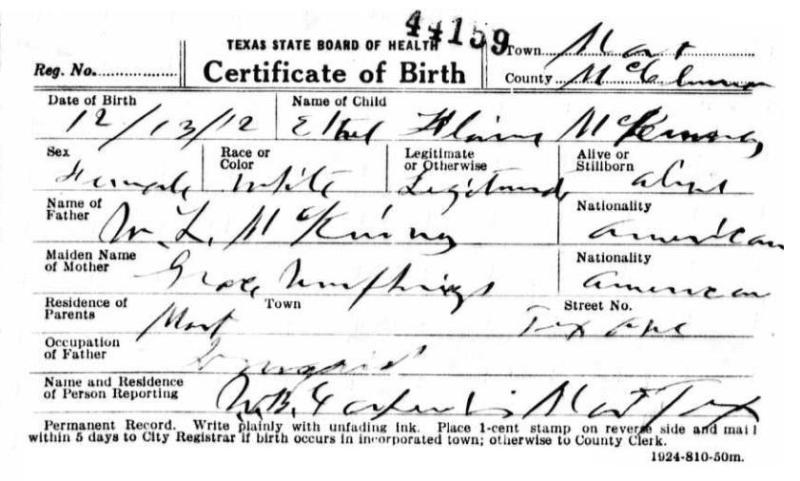 44159
TEXAS STATE BOARD OF HEALTH
Town Mart
Reg. No.
Certificate of Birth
County McLennan
Date of Birth
Name of Child
12/13/12 Ethel McKinney
Sex
Race or Color
Legitimate or Otherwise
Alive or Stillborn
Female White Legitimate alive
Name of Father
W. L. McKinney
Nationality
American
Maiden Name of Mother
Grace Humphries
Nationality
American
Residence of Parents
Town
Street No.
Mart Tex
Occupation of Father
Name and Residence of Person Reporting
W.B. Mart Tex
Permanent Record. Write plainly with unfading ink. Place 1-cent stamp on reverse side and mail
within 5 days to City Registrar if birth occurs in incorporated town; otherwise to County Clerk.
1924-810-50m.